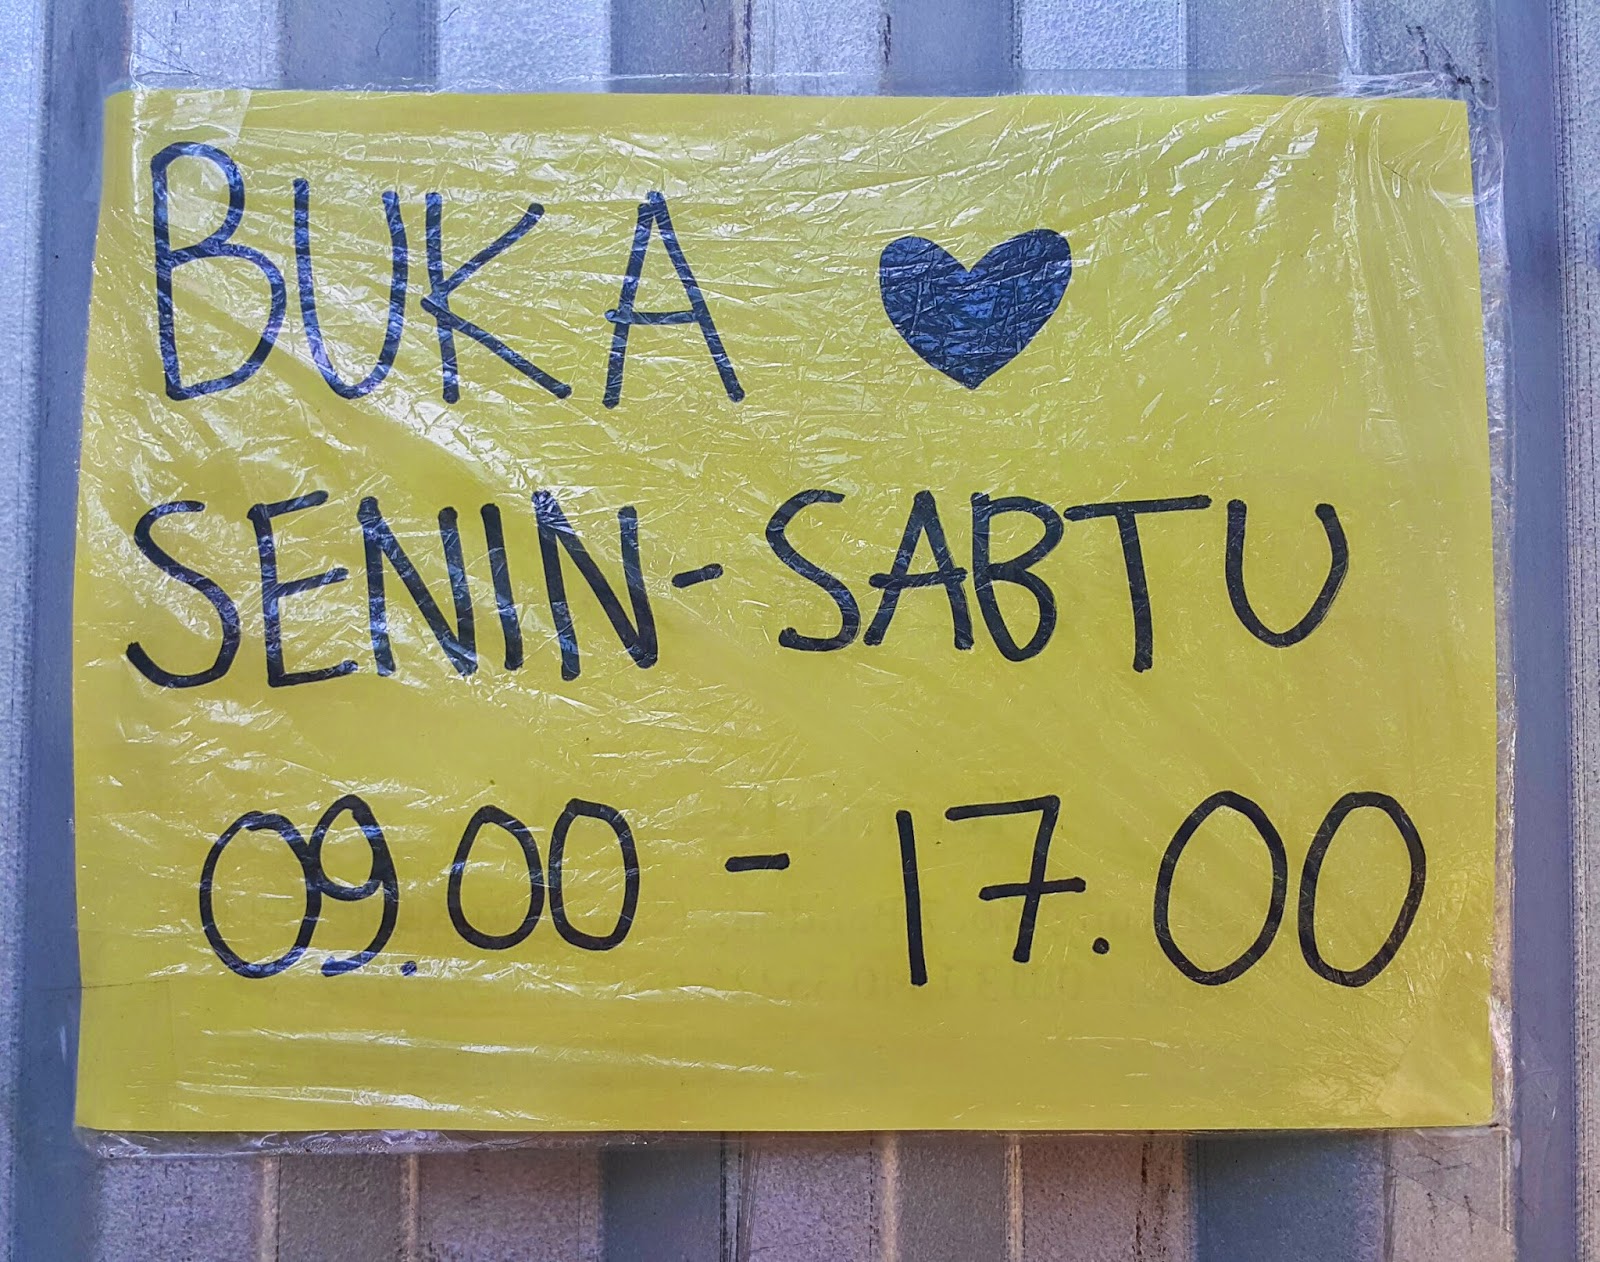 BUKA ♥
SENIN-SABTU
09.00 - 17.00